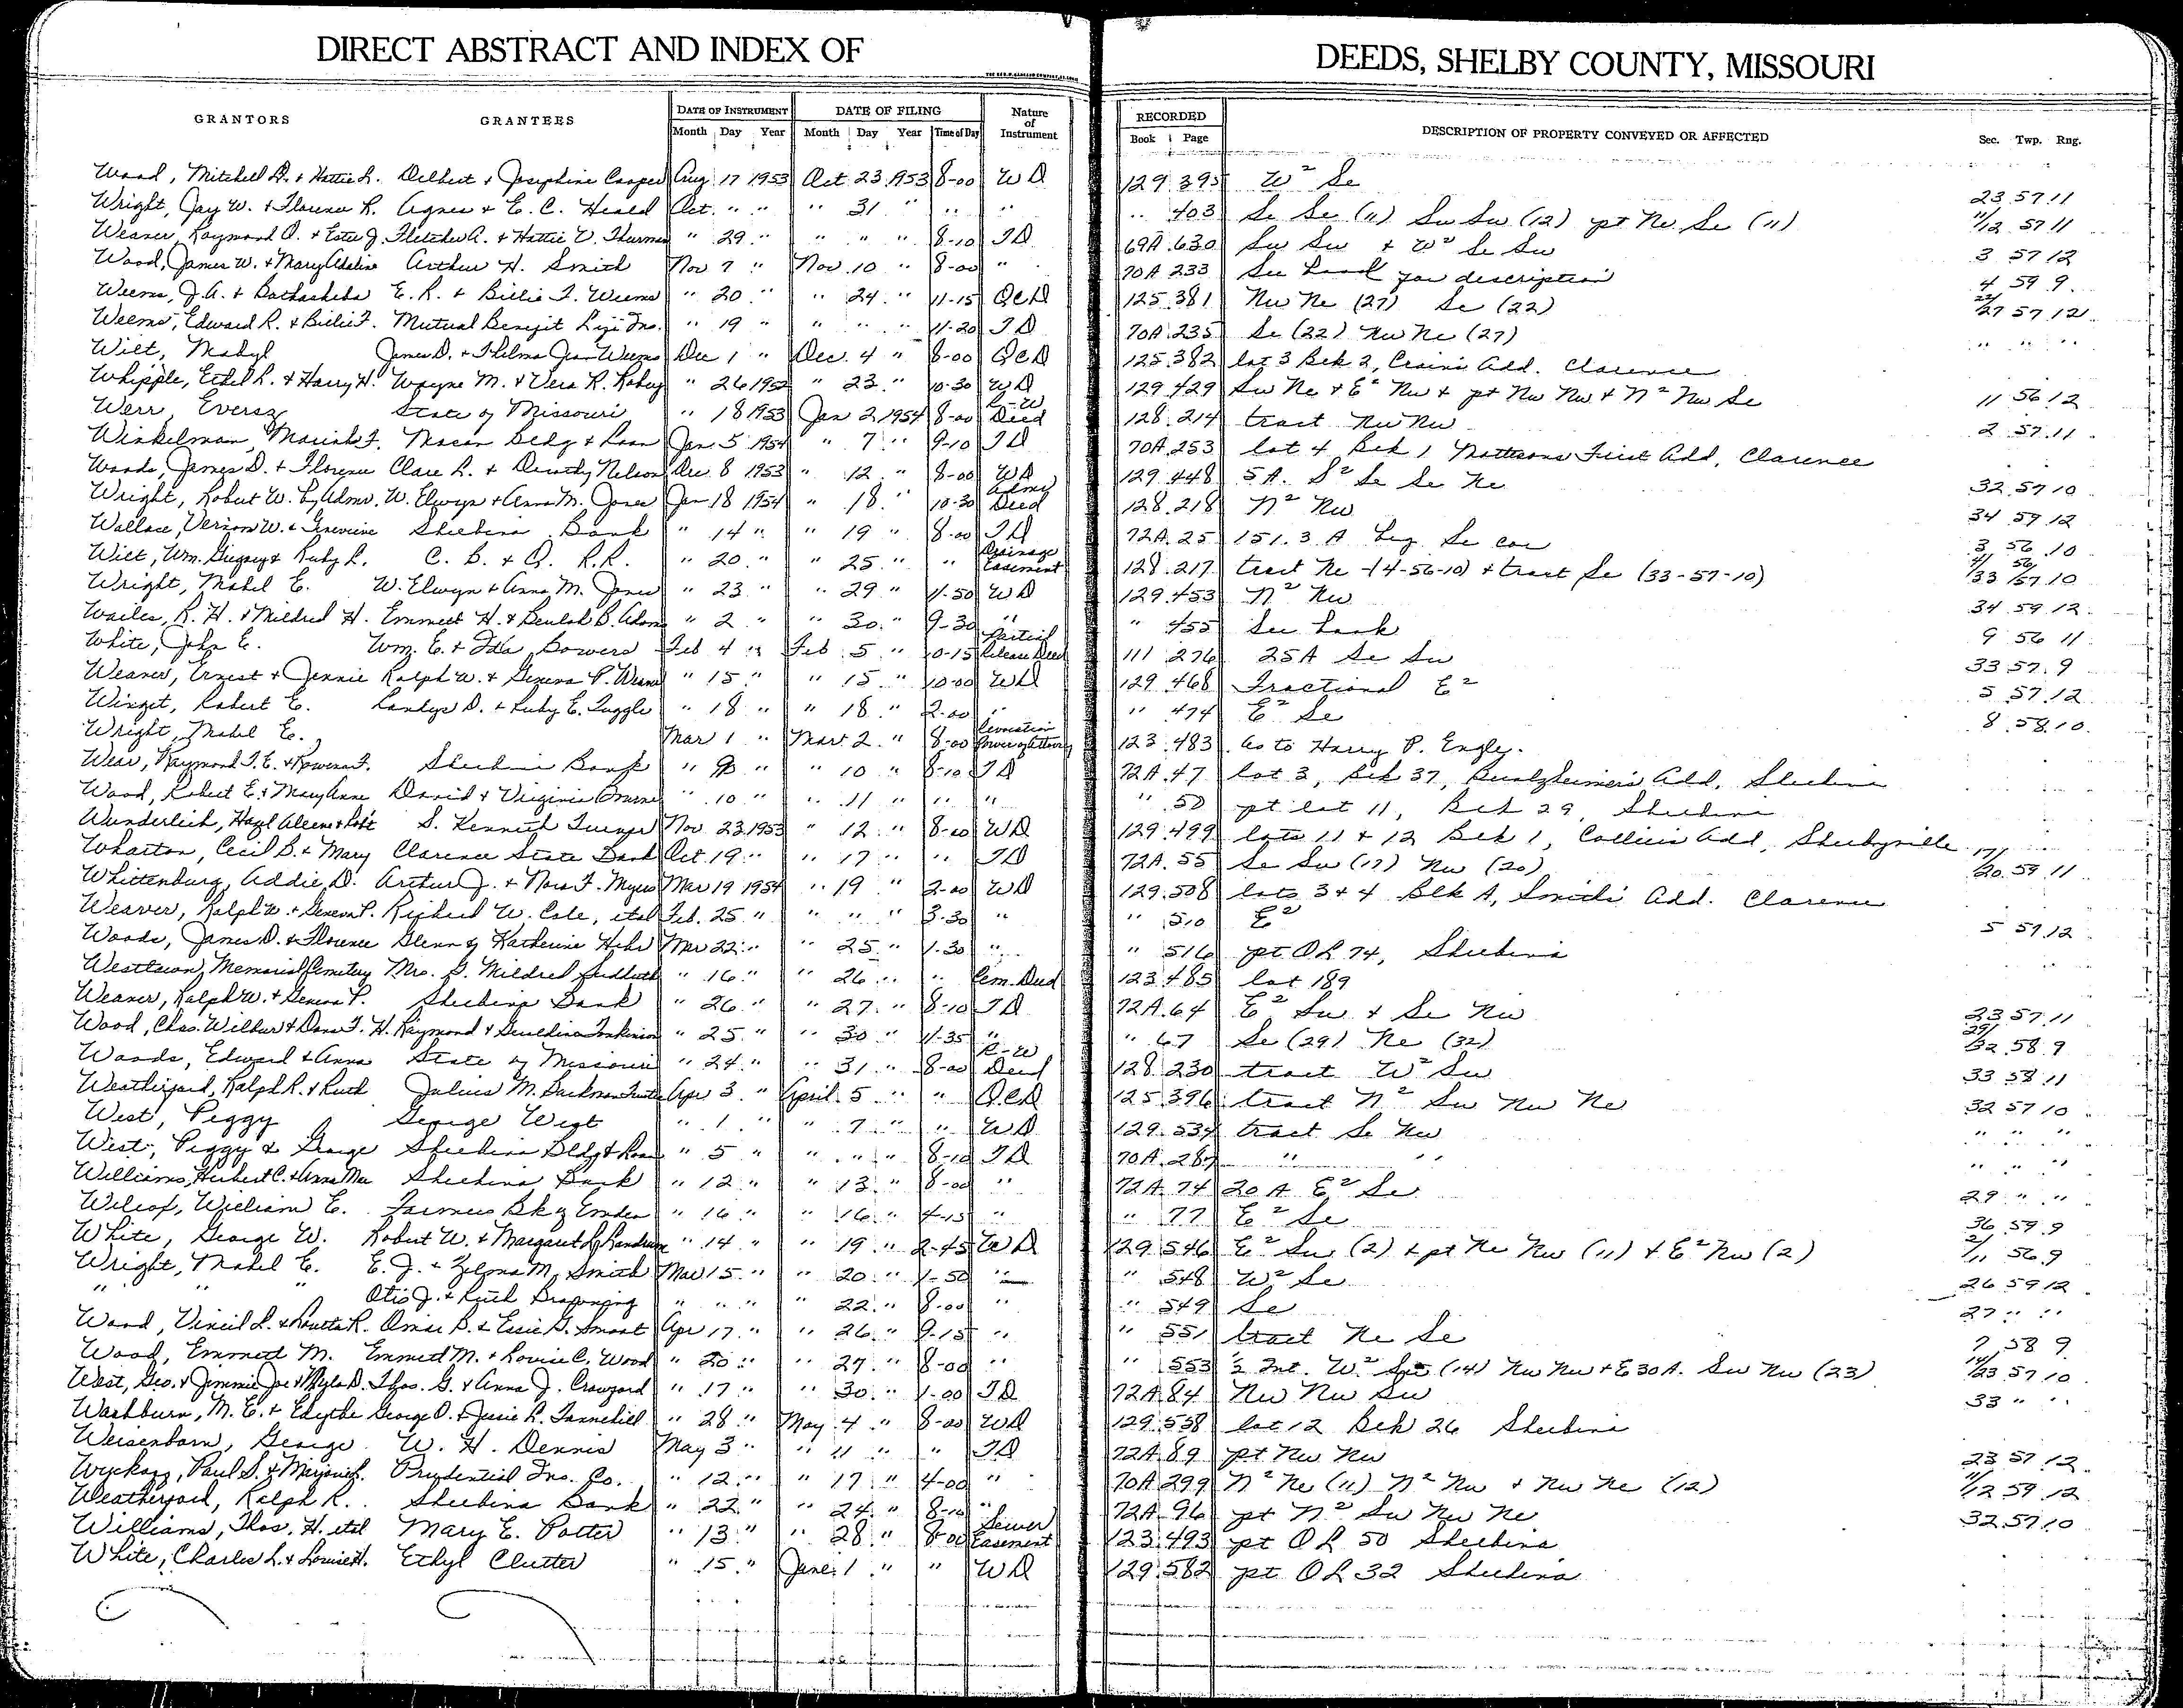 DIRECT ABSTRACT AND INDEX OF DEEDS, SHELBY COUNTY, MISSOURI
GRANTORS GRANTEES DATE OF INSTRUMENT DATE OF FILING Nature of Instrument RECORDED DESCRIPTION OF PROPERTY CONVEYED OR AFFECTED Sec. Twp. Rng.
Month Day Year Month Day Year Time of Day Book Page
Wood, Mitchell D. & Hattie L. Delbert & Josephine Cooper Aug 17 1953 Oct 23 1953 8-00 WD 129 395 W² Se 23 57 11
Wright, Jay W. & Florence R. Agnes & E. C. Heald Oct. " " " 31 " " " " 403 Se Se (11) Sw Sw (12) pt Ne Se (11) 11/12 57 11
Weaver, Raymond O. & Ester J. Fletcher A. & Hattie V. Thurman " 29 " " " " 8-10 TD 69A 630 Sw Sw & W² Se Sw 3 57 12
Wood, James W. & Mary Adaline Arthur H. Smith Nov 7 " Nov 10 " 8-00 " 70A 233 See book for description 4 59 9
Weems, J.A. & Bathasheba E. R. & Billie F. Weems " 20 " " 24 " 11-15 QCD 125 381 Nw Ne (27) Se (22) 22/27 57 12
Weems, Edward R. & Billie F. Mutual Benefit Life Ins. " 19 " " " " 11-20 TD 70A 235 Se (22) Nw Ne (27) " " "
Wilt, Mabyl James D. & Thelma Jean Weems Dec 1 " Dec. 4 " 8-00 QCD 125 382 lot 3 Blk 2, Crains Add. Clarence
Whipple, Ethel L. & Harry H. Wayne M. & Vera R. Robey " 26 1952 " 23 " 10-30 WD 129 429 Sw Ne & E² Nw & pt Nw Nw & N² Nw Se 11 56 12
Werr, Everss State of Missouri " 18 1953 Jan 2 1954 8-00 R-W Deed 128 214 tract Nw Nw 2 57 11
Winkelman, Mariah F. Macon Bldg & Loan Jan. 5 1954 " 7 " 9-10 TD 70A 253 lot 4 Blk 1 Mattsons First Add, Clarence
Woods, James D. & Florence Clare L. & Dorothy Nelson Dec. 8 1953 " 12 " 8-00 WD 129 448 5 A. S² Se Se Ne 32 57 10
Wright, Robert W. by Admr. W. Elwyn & Anna M. Jones Jan 18 1954 " 18 " 10-30 Admr Deed 128 218 N² Nw 34 59 12
Wallace, Vernon W. & Genevieve Shelbina Bank " 14 " " 19 " 8-00 TD 72A 25 151.3 A beg. Se cor 3 56 10
Wilt, Wm. Gregory & Ruby L. C. B. & Q. R.R. " 20 " " 25 " " Drainage Easement 128 217 tract Ne (4-56-10) & tract Se (33-57-10) 4/33 56/57 10
Wright, Mabel E. W. Elwyn & Anna M. Jones " 23 " " 29 " 11-50 WD 129 453 N² Nw 34 59 12
Wailes, R. H. & Mildred H. Emmett H. & Beulah B. Adams " 2 " " 30 " 9-30 " " 455 See book 9 56 11
White, John E. Wm. E. & Ida Bowers Feb 4 " Feb 5 " 10-15 Partial Release Deed 111 276 25A Se Sw 33 57 9
Weaver, Ernest & Jennie Ralph W. & Geneva P. Weaver " 15 " " 15 " 10-00 WD 129 468 Fractional E² 5 57 12
Winget, Robert E. Landye D. & Ruby E. Tuggle " 18 " " 18 " 2-00 " " 474 E² Se 8 58 10
Wright, Mabel E. Mar 1 " Mar 2 " 8-00 Revocation Power of Attorney 123 483 as to Harry P. Engle.
Wear, Raymond F. E. & Rowena F. Shelbina Bank " 9 " " 10 " 8-10 TD 72A 47 lot 3, Blk 37, Add, Shelbina
Wood, Robert E. & Mary Anne David & Virginia " 10 " " 11 " " " " 50 pt lot 11, Blk 29, Shelbina
Wunderlich, Hazel Aleene & Robt S. Kenneth Turner Nov 23 1953 " 12 " 8-00 WD 129 499 lots 11 & 12 Blk 1, Collier Add, Shelbyville
Wharton, Cecil B. & Mary Clarence State Bank Oct. 19 " " 17 " " TD 72A 55 Se Sw (17) Nw (20) 17/20 59 11
Whittenburg, Addie D. Arthur J. & Nora F. Myers Mar 19 1954 " 19 " 2-00 WD 129 508 lots 3 & 4 Blk A, Smith's Add. Clarence
Weaver, Ralph W. & Geneva P. Richard W. Cole, etal Feb. 25 " " " " 3-30 " " 510 E² 5 57 12
Woods, James D. & Florence Glenn & Katherine Mar 22 " " 25 " 1-30 " " 516 pt OL 74, Shelbina
Westlawn Memorial Cemetery Mrs. G. Mildred " 16 " " 26 " " Cem. Deed 123 485 lot 189
Weaver, Ralph W. & Geneva P. Shelbina Bank " 26 " " 27 " 8-10 TD 72A 64 E² Sw & Se Nw 23 57 11
Wood, Chas. Wilbur & Dona F. H. Raymond & Geraldine Tonkinson " 25 " " 30 " 11-35 " " 67 Se (29) Ne (32) 29/32 58 9
Woods, Edward & Anna State of Missouri " 24 " " 31 " 8-00 R-W Deed 128 230 tract W² Sw 33 58 11
Weatherford, Ralph R. & Ruth Julius M. Backman Trustee Apr 3 " April 5 " " QCD 125 396 tract N² Sw Nw Ne 32 57 10
West, Peggy George West " 1 " " 7 " " WD 129 534 tract Se Nw " " "
West, Peggy & George Shelbina Bldg & Loan " 5 " " " " 8-10 TD 70A 284 " " " " "
Williams, Herbert C. & Anna Mae Shelbina Bank " 12 " " 13 " 8-00 " 72A 74 20 A E² Se 29 " "
Wilcox, William E. Farmers Bk of Emden " 16 " " 16 " 4-15 " " 77 E² Se 36 59 9
White, George W. Robert W. & Margaret L. " 14 " " 19 " 2-45 WD 129 546 E² Sw (2) & pt Ne Nw (11) & E² Nw (2) 2/11 56 9
Wright, Mabel E. E. J. & Zelma M. Smith Mar 15 " " 20 " 1-50 " " 548 W² Se 26 59 12
" " " Otis J. & Ruth " " " " 22 " 8-00 " " 549 Se 27 " "
Wood, Vincil L. & Louetta R. Omar B. & Essie G. Smoot Apr 17 " " 26 " 9-15 " " 551 tract Ne Se 7 58 9
Wood, Emmett M. Emmett M. & Lovise C. Wood " 20 " " 27 " 8-00 " " 553 ½ Int. W² Se (14) Nw Nw & E 30A. Sw Nw (23) 14/23 57 10
West, Geo. & Jimmie Joe & Thos. G. & Anna J. Crawford " 17 " " 30 " 1-00 TD 72A 84 Nw Nw Sw 33 " "
Washburn, M. E. & Edythe George O. & Jessie L. Tannehill " 28 " May 4 " 8-00 WD 129 558 lot 12 Blk 26 Shelbina
Weisenborn, George W. H. Dennis May 3 " " 11 " " TD 72A 89 pt Nw Nw 23 57 12
Wyckoff, Paul S. & Marjorie L. Prudential Ins. Co. " 12 " " 17 " 4-00 " 70A 299 N² Ne (11) N² Nw & Nw Ne (12) 11/12 59 12
Weatherford, Ralph R. Shelbina Bank " 22 " " 24 " 8-10 " 72A 96 pt N² Sw Nw Ne 32 57 10
Williams, Thos. H. etal Mary E. Potter " 13 " " 28 " 8-00 Sewer Easement 123 493 pt OL 50 Shelbina
White, Charles L. & Louise H. Ethyl Clutter " 15 " June 1 " " WD 129 582 pt OL 32 Shelbina